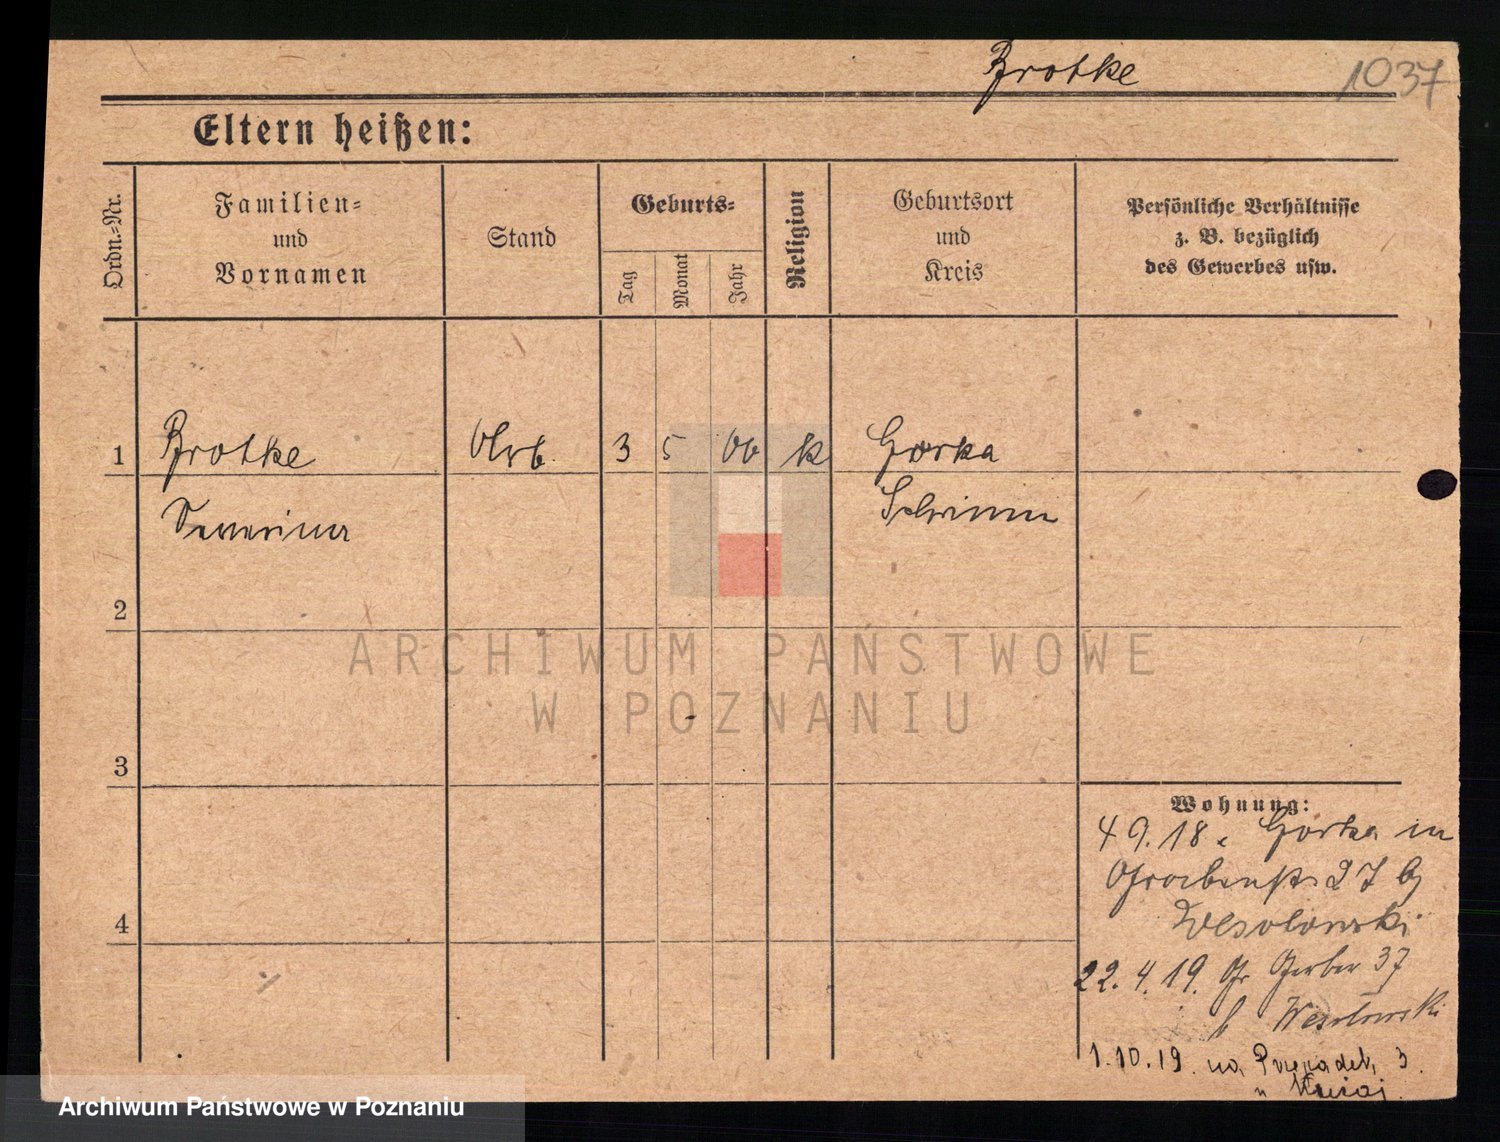 Brotke
1037
Eltern heißen:
Ordn.-Nr.
Familien-
und
Vornamen
Stand
Geburts-
Tag
Monat
Jahr
Religion
Geburtsort
und
Kreis
Persönliche Verhältnisse
z. B. bezüglich
des Gewerbes usw.
1 Brotke 3 5 00 k Gorka
Severina Schrimm
2
3
4
Wohnung:
4 9. 18. Gorka in
27
Wesolowski
22. 4. 19. Gr Gerber 37
b Wesolowski
1. 10. 19. na Przepadek 3.
u
ARCHIWUM PAŃSTWOWE
W POZNANIU
Archiwum Państwowe w Poznaniu